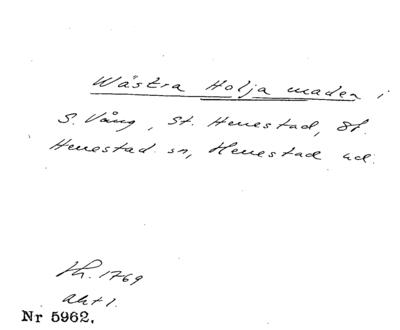 Wästra Holja maden i
S. Vång, St. Herrestad, St.
Herrestad sn, Herrestad hd.
Sk. 1769
akt 1.
Nr 5962.